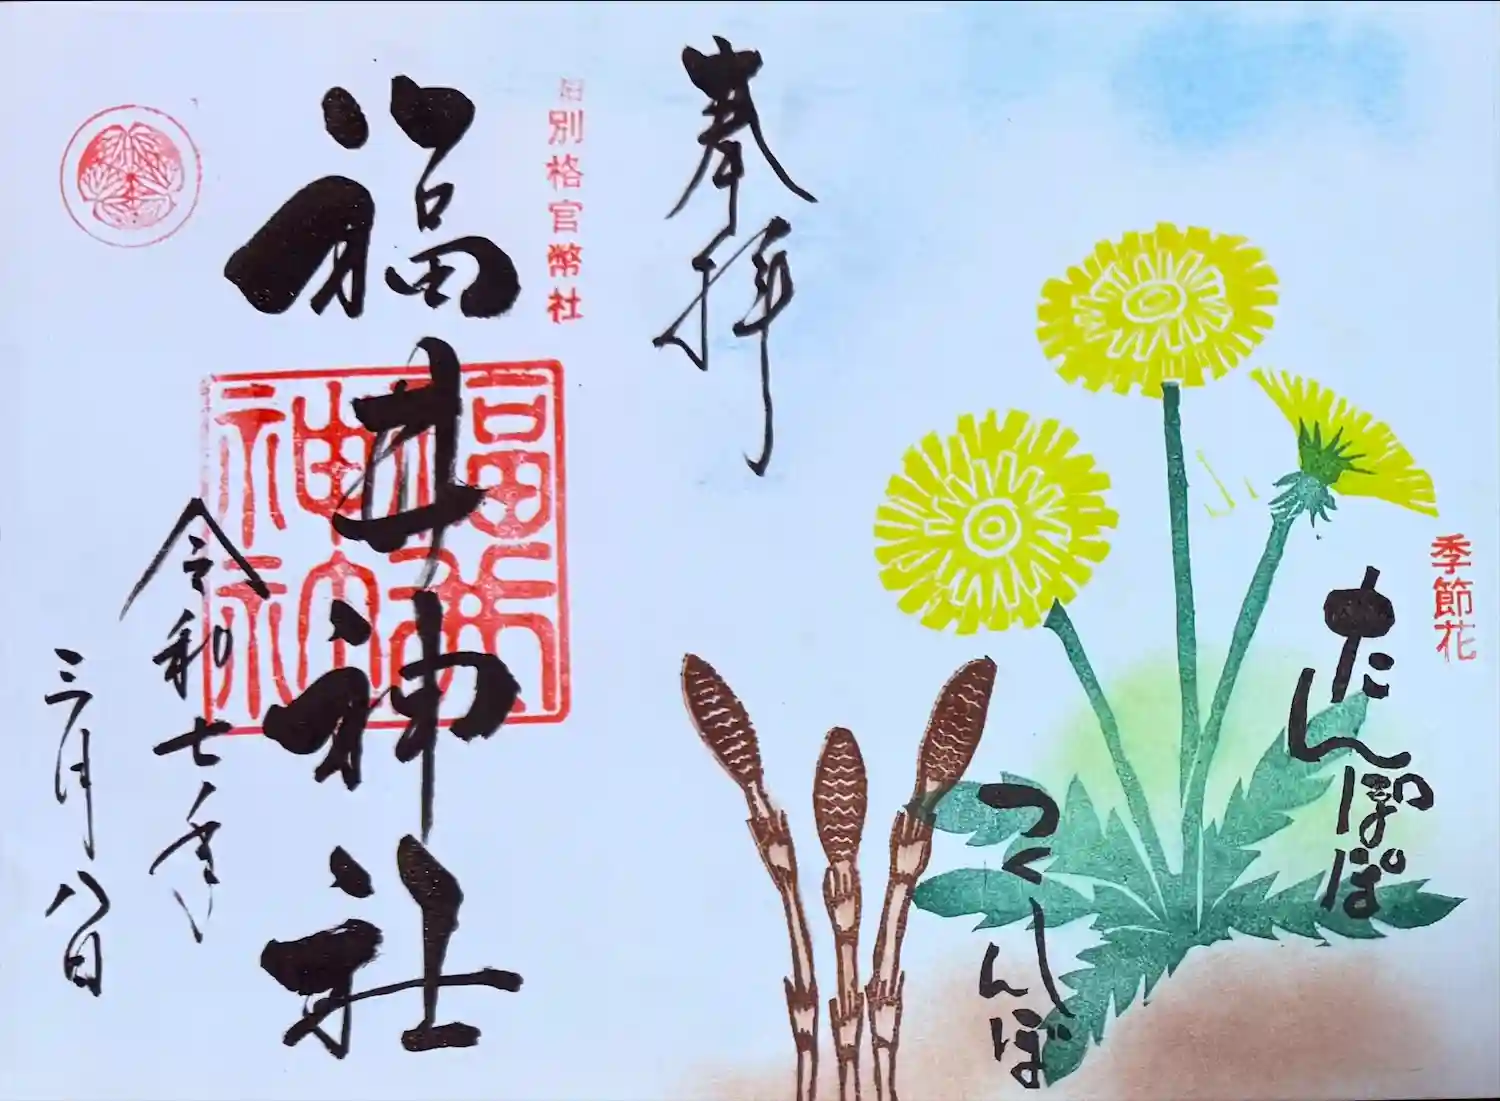 季節花
たんぽぽ
つくしんぼ
奉拝
旧別格官幣社
福井神社
福井神社
令和七年
三月八日